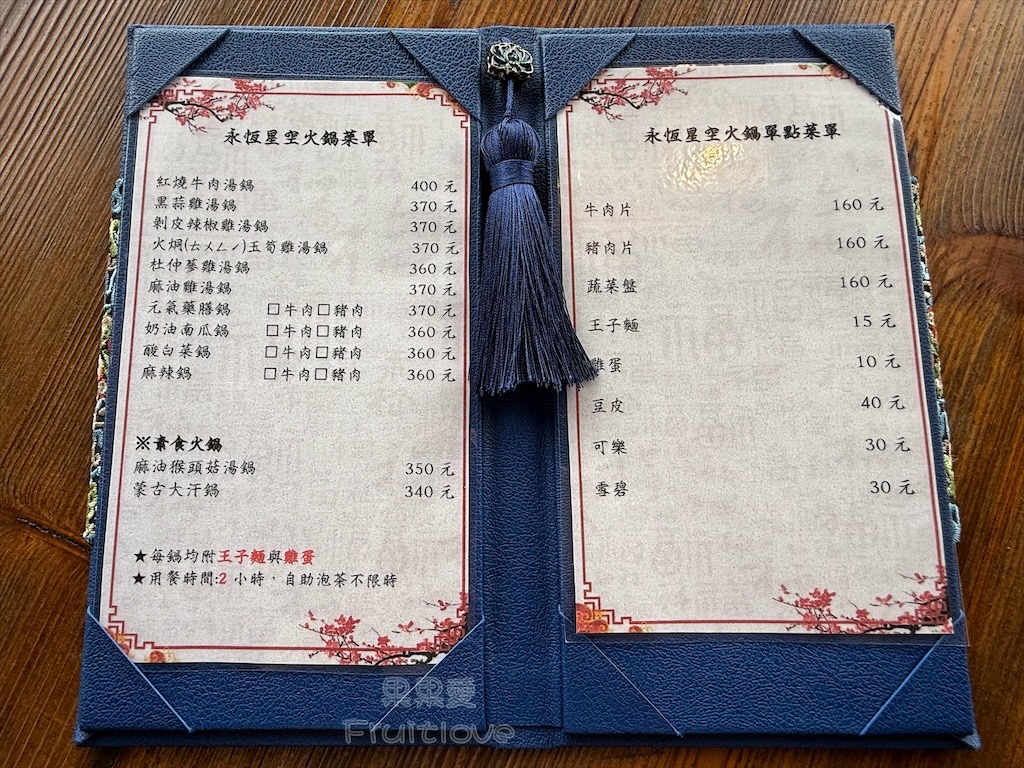 永恆星空火鍋菜單
紅燒牛肉湯鍋 400 元
黑蒜雞湯鍋 370 元
剝皮辣椒雞湯鍋 370 元
火焗(ㄊㄨㄥˊ)玉筍雞湯鍋 370 元
杜仲蔘雞湯鍋 360 元
麻油雞湯鍋 370 元
元氣藥膳鍋 □牛肉□豬肉 370 元
奶油南瓜鍋 □牛肉□豬肉 360 元
酸白菜鍋 □牛肉□豬肉 360 元
麻辣鍋 □牛肉□豬肉 360 元
※素食火鍋
麻油猴頭菇湯鍋 350 元
蒙古大汗鍋 340 元
★每鍋均附王子麵與雞蛋
★用餐時間:2 小時，自助泡茶不限時
永恆星空火鍋單點菜單
牛肉片 160 元
豬肉片 160 元
蔬菜盤 160 元
王子麵 15 元
雞蛋 10 元
豆皮 40 元
可樂 30 元
雪碧 30 元
果果愛
Fruitlove